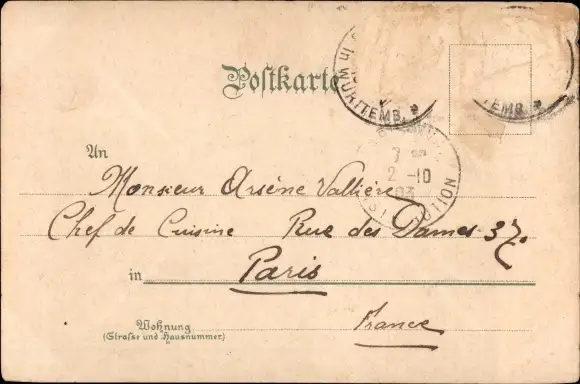 Postkarte
in WÜRTTEMB.
TEMB.
7
2 -10
03
DISTRIBUTION
An
Monsieur Arsène Vallière
Chef de Cuisine Rue des Dames 37.
in Paris
Wohnung
(Straße und Hausnummer)
France